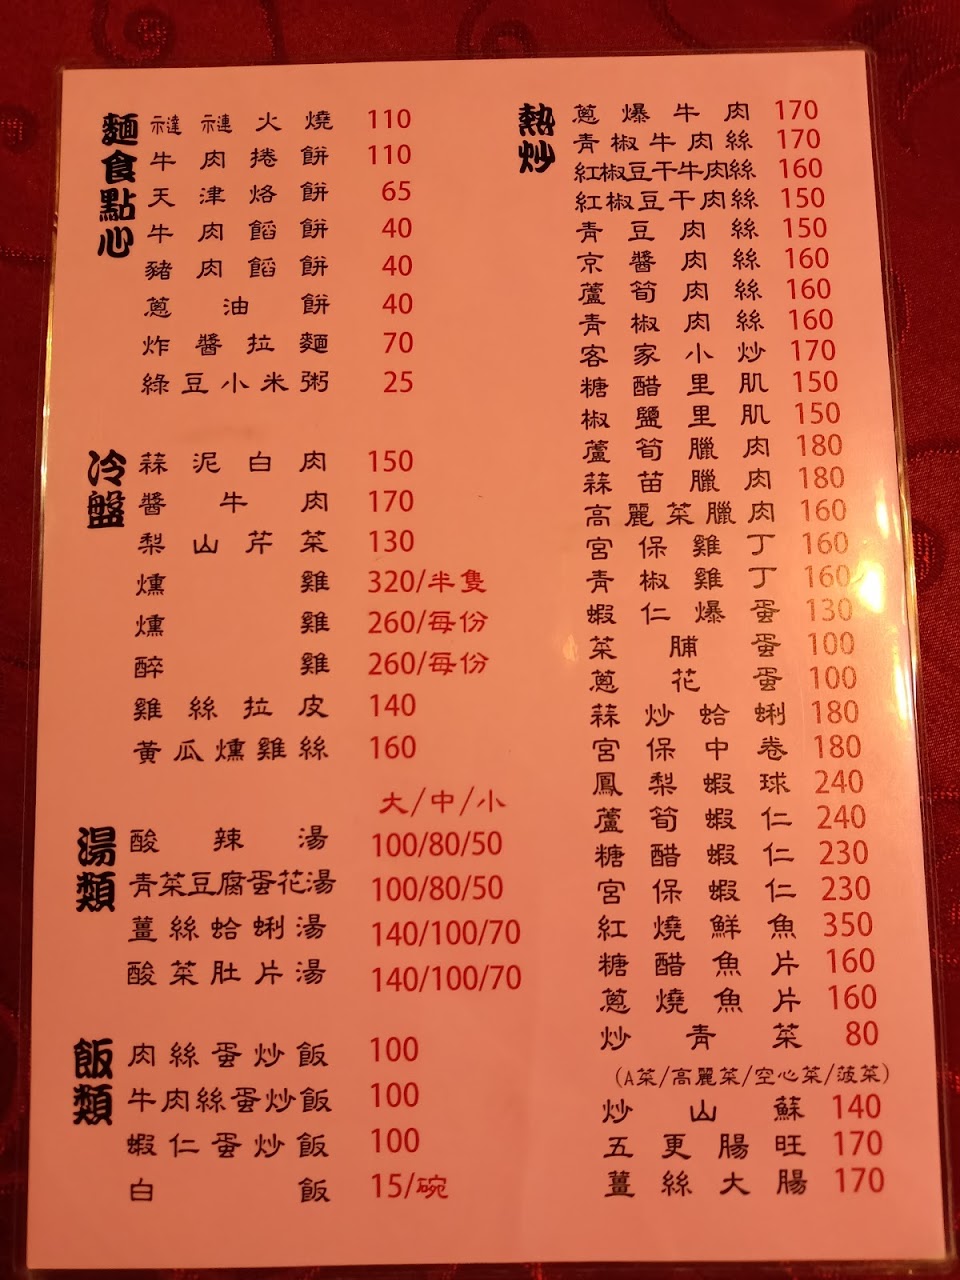 麵食點心
褡褳火燒 110
牛肉捲餅 110
天津烙餅 65
牛肉餡餅 40
豬肉餡餅 40
蔥油餅 40
炸醬拉麵 70
綠豆小米粥 25
冷盤
蒜泥白肉 150
醬牛肉 170
梨山芹菜 130
燻雞 320/半隻
燻雞 260/每份
醉雞 260/每份
雞絲拉皮 140
黃瓜燻雞絲 160
湯類
大/中/小
酸辣湯 100/80/50
青菜豆腐蛋花湯 100/80/50
薑絲蛤蜊湯 140/100/70
酸菜肚片湯 140/100/70
飯類
肉絲蛋炒飯 100
牛肉絲蛋炒飯 100
蝦仁蛋炒飯 100
白飯 15/碗
熱炒
蔥爆牛肉 170
青椒牛肉絲 170
紅椒豆干牛肉絲 160
紅椒豆干肉絲 150
青豆肉絲 150
京醬肉絲 160
蘆筍肉絲 160
青椒肉絲 160
客家小炒 170
糖醋里肌 150
椒鹽里肌 150
蘆筍臘肉 180
蒜苗臘肉 180
高麗菜臘肉 160
宮保雞丁 160
青椒雞丁 160
蝦仁爆蛋 130
菜脯蛋 100
蔥花蛋 100
蒜炒蛤蜊 180
宮保中卷 180
鳳梨蝦球 240
蘆筍蝦仁 240
糖醋蝦仁 230
宮保蝦仁 230
紅燒鮮魚 350
糖醋魚片 160
蔥燒魚片 160
炒青菜 80
(A菜/高麗菜/空心菜/菠菜)
炒山蘇 140
五更腸旺 170
薑絲大腸 170